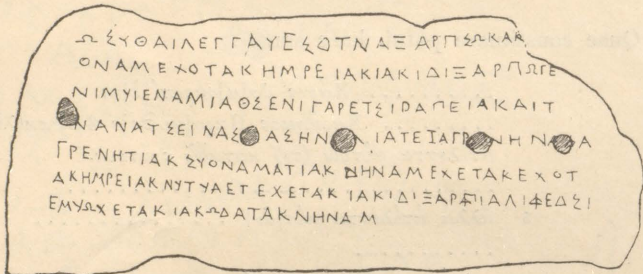 ΩΣΥΘΑΙΛΕΓΓΑΥΕΣΟΤΝΑΞΑΡΠΣΩΚΑΚ
ΟΝΑΜΕΧΟΤΑΚΗΜΡΕΙΑΚΙΑΚΙΔΙΞΑΡΠΩΓΕ
ΝΙΜΥΙΕΝΑΜΙΑΘΣΕΝΙΓΑΡΕΤΣΙDΑΠΕΙΑΚΑΙΤ
ΝΑΝΑΤΣΕΙΝΑΣ ΑΣΗΝ ΙΑΤΕΙΑΓΡ ΝΗΝΑ Α
ΓΡΕΝΗΤΙΑΚΣΥΟΝΑΜΑΤΙΑΚΝΗΝΑΜΕΧΕΤΑΚΕΧΟΤ
ΑΚΗΜΡΕΙΑΚΝΥΤΥΑΕΤΕΧΕΤΑΚΙΑΚΙΔΙΞΑΡΠΙΑΛΙΦΕΔΣΙ
ΕΜΥΩΧΕΤΑΚΙΑΚΩΔΑΤΑΚΝΗΝΑΜ